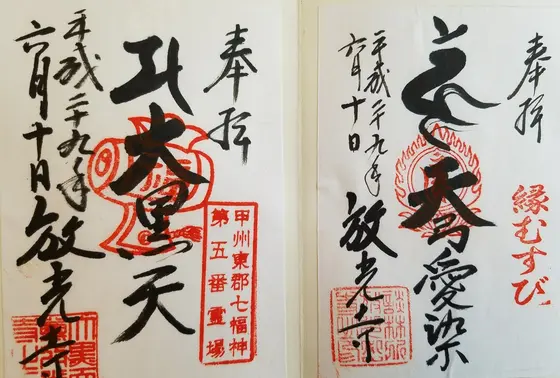 奉拝
縁むすび
天弓愛染
平成二十九年
六月十日
放光寺
奉拝
甲州東郡七福神
第五番霊場
大黒天
平成二十九年
六月十日
放光寺